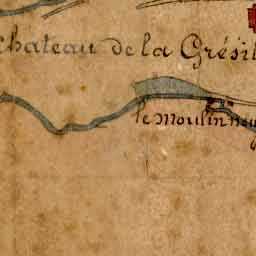 Chateau de la Grésil
le Moulin neu